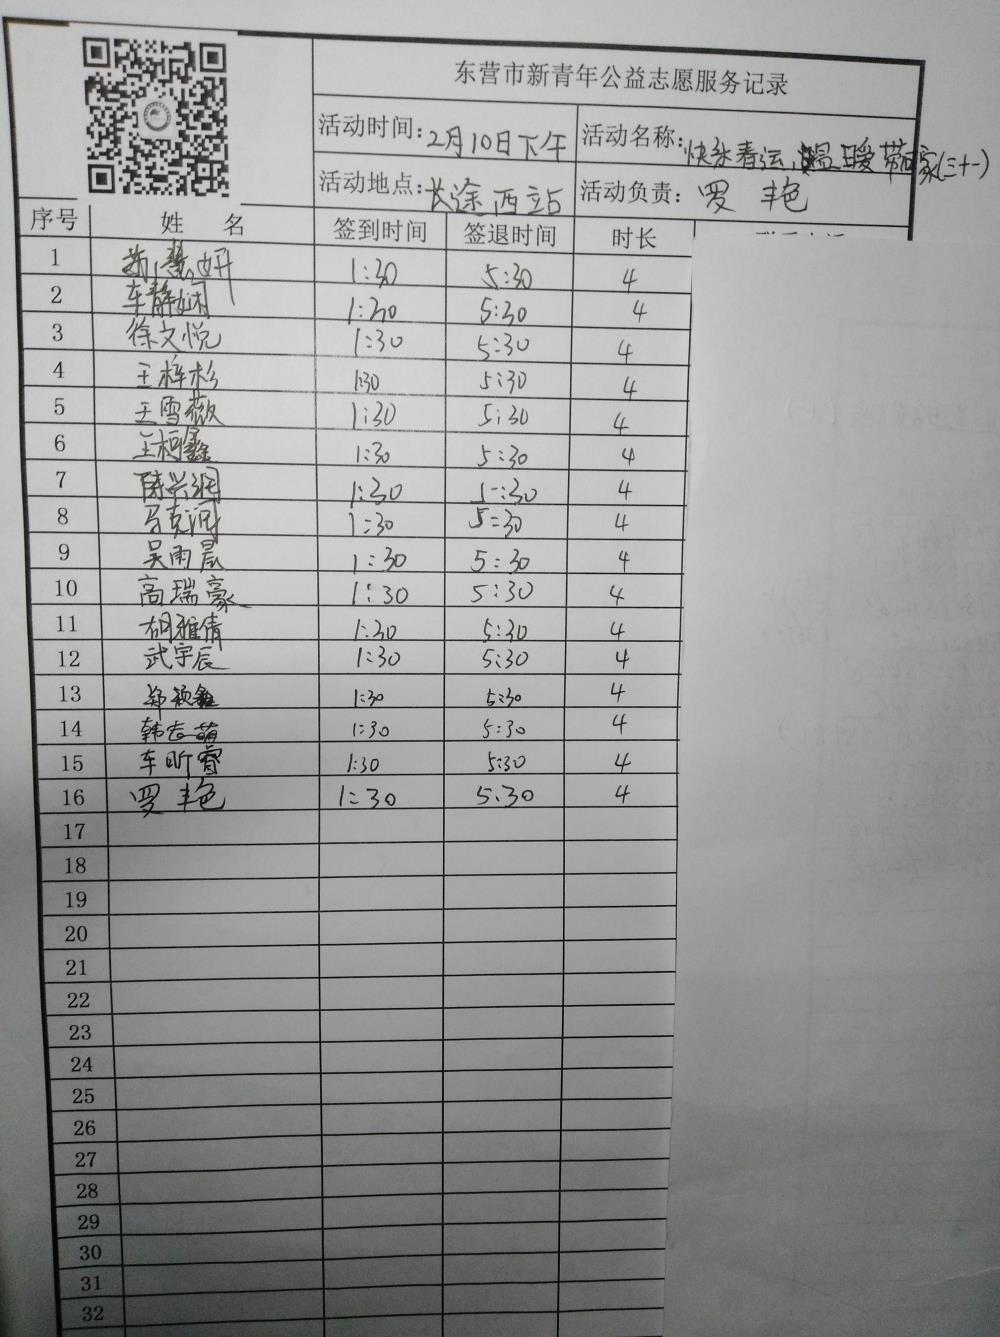 东营市新青年公益志愿服务记录
活动时间: 2月10日下午 活动名称: 快乐春运,温暖带回家(三十一)
活动地点: 长途西站 活动负责: 罗丰艳
序号 姓 名 签到时间 签退时间 时长
1 慧妍 1:30 5:30 4
2 车静娴 1:30 5:30 4
3 徐文悦 1:30 5:30 4
4 王梓杉 1:30 5:30 4
5 王雪薇 1:30 5:30 4
6 王柯鑫 1:30 5:30 4
7 陈兴润 1:30 5:30 4
8 马克润 1:30 5:30 4
9 吴雨晨 1:30 5:30 4
10 高瑞豪 1:30 5:30 4
11 胡雅倩 1:30 5:30 4
12 武宇辰 1:30 5:30 4
13 郑颖鑫 1:30 5:30 4
14 韩志萌 1:30 5:30 4
15 车昕睿 1:30 5:30 4
16 罗丰艳 1:30 5:30 4
17
18
19
20
21
22
23
24
25
26
27
28
29
30
31
32